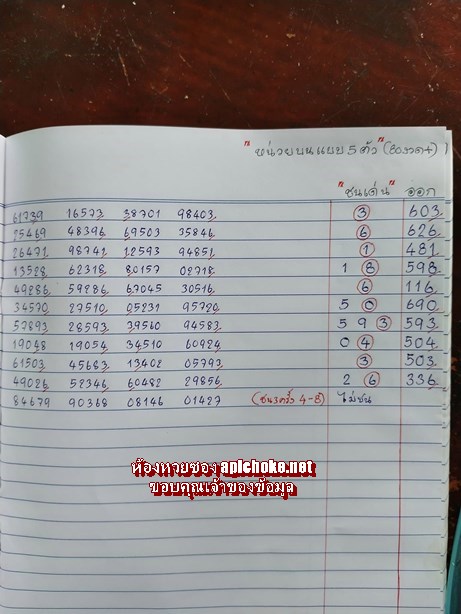 "หน่วยบนแบบ 5 ตัว" (80งวด+)
"ชนเด่น" ออก
61739 16573 38701 98403 3 603
25469 48396 69503 35846 6 626
26471 98741 12593 94851 1 481
13528 62318 80157 02718 1 8 598
49286 59286 67045 30516 6 116
34570 27510 05231 95720 5 0 690
57893 28593 39560 94583 5 9 3 593
19048 19054 34510 60924 0 4 504
61503 45683 13402 05793 3 503
49026 52346 60482 29856 2 6 336
84679 90368 08146 01427 (ชน3ครั้ง 4-8) ไม่ชน
ห้องหวยซอง apichoke.net
ขอบคุณเจ้าของข้อมูล